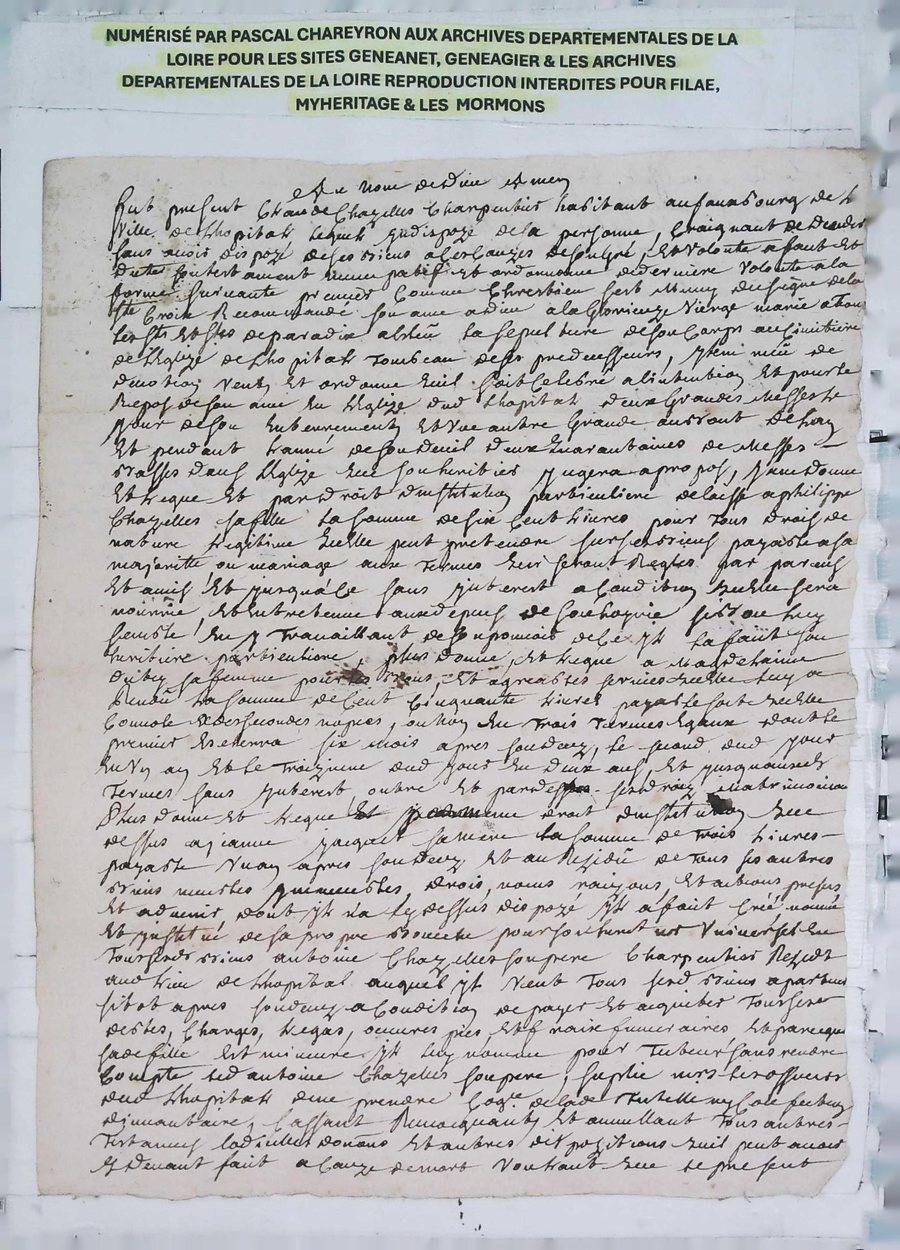 NUMÉRISÉ PAR PASCAL CHAREYRON AUX ARCHIVES DEPARTEMENTALES DE LA
LOIRE POUR LES SITES GENEANET, GENEAGIER & LES ARCHIVES
DEPARTEMENTALES DE LA LOIRE REPRODUCTION INTERDITES POUR FILAE,
MYHERITAGE & LES MORMONS
Au Nom de Dieu Amen
fut present Claude Chazelles Charpentier habitant au fauxbourg de la
ville de Lhopital lequel indispozé de sa personne, Craignant de deceder
sans avoir dispozé de ses biens a ces Cauzes de son gré, et volonté a fait et
dicté son testament nuncupatif et ordonnance de derniere volonté a la
forme suivante premier Comme Chrestien sest muny du signe de la
Ste Croix Recommandé son ame a Dieu a la Glorieuze Vierge marie a tous
les Sts et Stes de paradis a leleu sa sepulture de son Corps au Cimitiere
de LEglize de Lhopital Tombeau de ses predecesseurs, Item meu de
devotion Veut et ordonne quil soit Celebré a lintention et pour le
Repos de son ame en LEglize dud Lhopital deux Grandes Messes le
jour de son Enterrement et Une autre Grande au bout de lan
Et pendant Lanné de son deuil deux quarantaines de Messes
basses dans LEglize que son heritier jugera a propos, Item donne
Et legue et par droit dinstitution particuliere delaisse a philippe
Chazelles sa fille La somme de six Cent livres pour Tous droits de
nature Legitime quelle peut pretendre sur ses biens payable a sa
majorité ou mariage aux Termes qui seront Reglés par parens
Et amis Et jusqu'a ce sans interest a Condition quelle sera
nourrie, et Entretenue aux depens de son hoirie
en y Travaillant de son pouvoir de ce il La fait son
heritiere particuliere, plus donne, et legue a Magdelaine
sa femme pour les biens, et agreables services quelle luy a
Rendû La somme de Cent Cinquante livres payable soit quelle
Convole a des secondes nopces, ou non en Trois Termes Egaux dont le
premier Escherra six mois apres son deces, le second dud jour
en Un an Et le Troizieme dud jour En deux ans, et jusquausd
Termes sans interest outre et pardessus ses droits matrimoniaux
Plus donne et legue droit dinstitution que
dessus a jeanne sa mere La somme de Trois livres
payable Un an apres son deces Et au Rezidu de Tous ses autres
biens meubles immeubles, droits, noms raizons, et actions presens
Et advenir dont il n'a cy dessus dispozé il a fait Créé nommé
Et institué de sa propre Bouche pour son heritier Universel En
Tous sesd biens antoine Chazelles son pere Charpentier Rezidt
aud lieu de Lhopital auquel il Veut Tous sesd biens apartenir
sitot apres son deces a Condition de payer Et aquiter Tous ses
debtes, Charges, Legats, oeuvres pies, Et fraix funeraires, Et parceque
sade fille est mineure il luy nomme pour Tuteur sans rendre
Compte led antoine Chazelles son pere, suplie mrs les officiers
dud Lhopital den prendre de lade Tutelle ny Confection
dinvantaire, Cassant Revocquant et annullant Tous autres
Testamens Codicilles donations Et autres dispozitions quil peut avoir
cy devant fait a Cauze de mort Voulant que le present